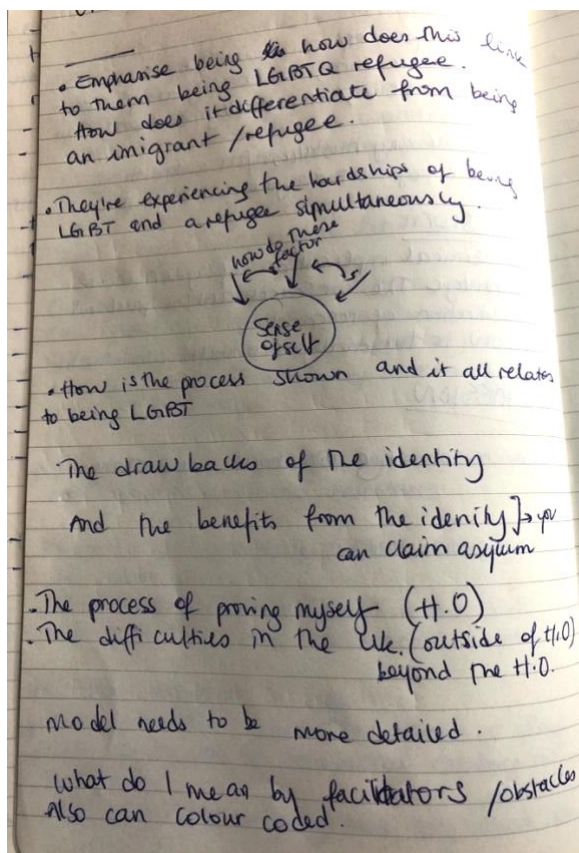 • Emphasise being how does this link
to them being LGBTQ refugee.
How does it differentiate from being
an imigrant / refugee.
• They're experiencing the hardships of being
LGBT and a refugee simultaneously.
how do these
factor
Sense
of self
• How is the process shown and it all relates
to being LGBT
The drawbacks of the identity
And the benefits from the idenity]→ you
can claim asylum
• The process of proving myself (H.O)
• The difficulties in the Uk. (outside of H.O)
beyond the H.O.
Model needs to be more detailed.
What do I mean by facilitators / obstacles
Also can colour coded.